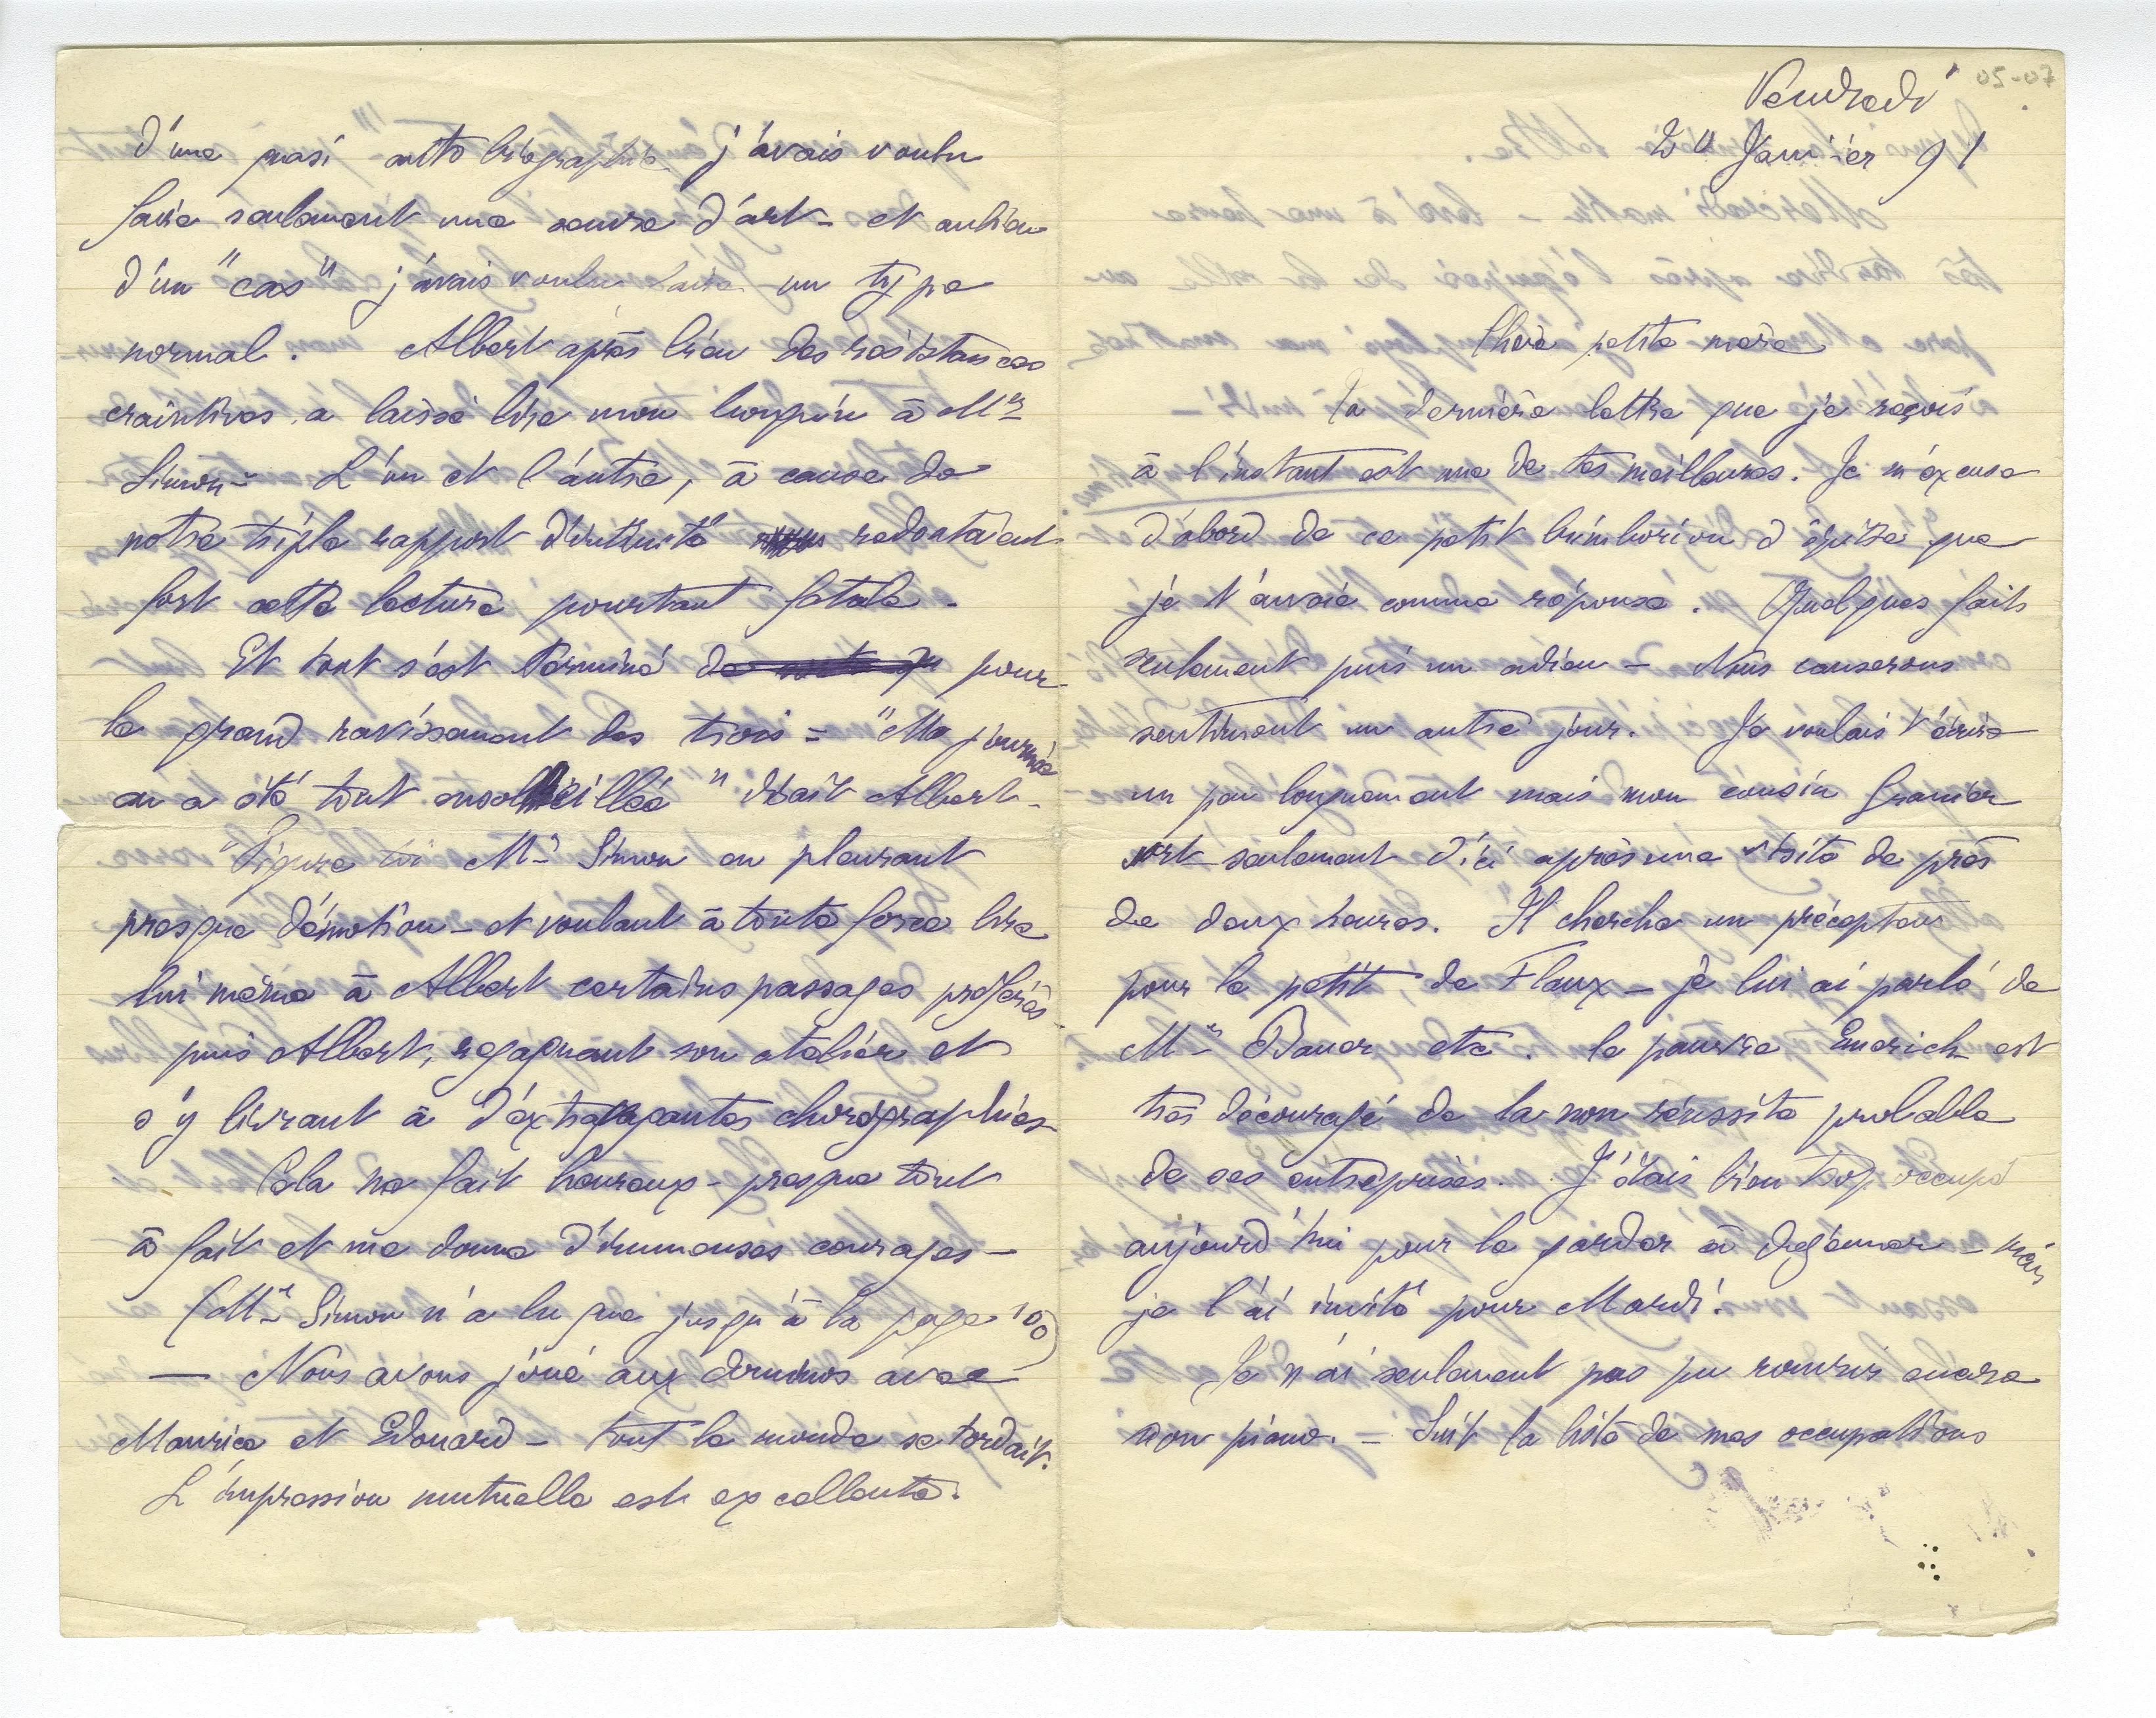 Vendredi
Janvier 91
05-07
Chère petite mère
Ta dernière lettre que je reçois
à l'instant est une de tes meilleures. Je m'excuse
d'abord de ce petit brimborion d'épitre que
je t'envoie comme réponse. Quelques faits
seulement puis un adieu – Nous causerons
sentiment un autre jour. Je voulais t'écrire
un peu longuement mais mon cousin Granier
sort seulement d'ici après une visite de près
de deux heures. Il cherche un précepteur
pour le petit de Flaux – je lui ai parlé de
Mr Bauer etc. le pauvre Emerich est
très découragé de la non réussite probable
de ses entreprises. J'étais bien trop occupé
aujourd'hui pour le garder à déjeuner – mais
je l'ai invité pour Mardi.
Je n'ai seulement pas pu rouvrir encore
mon piano. – Suit la liste de mes occupations
d'une quasi autobiographie j'avais voulu
faire seulement une œuvre d'art – et au lieu
d'un "cas" j'avais voulu faire un type
normal. Albert après bien des résistances
craintives a laissé lire mon bouquin à Mr
Simon – L'un et l'autre, à cause de
notre triple rapport d'intimité redoutaient
fort cette lecture pourtant fatale –
Et tout s'est terminé pour
le grand ravissement des trois = "Ma journée
en a été tout ensoleillée" disait Albert –
Figure toi Mr Simon en pleurant
presque d'émotion – et voulant à toute force lire
lui même à Albert certains passages préférés –
puis Albert, regagnant son atelier et
s'y livrant à d'extravagantes chorégraphies –
Cela me fait heureux – presque tout
à fait et me donne d'immenses courages –
(Mr Simon n'a lu que jusqu'à la page 100)
— Nous avons joué aux dominos avec
Maurice et Edouard – tout le monde se tordait.
L'impression mutuelle est excellente.